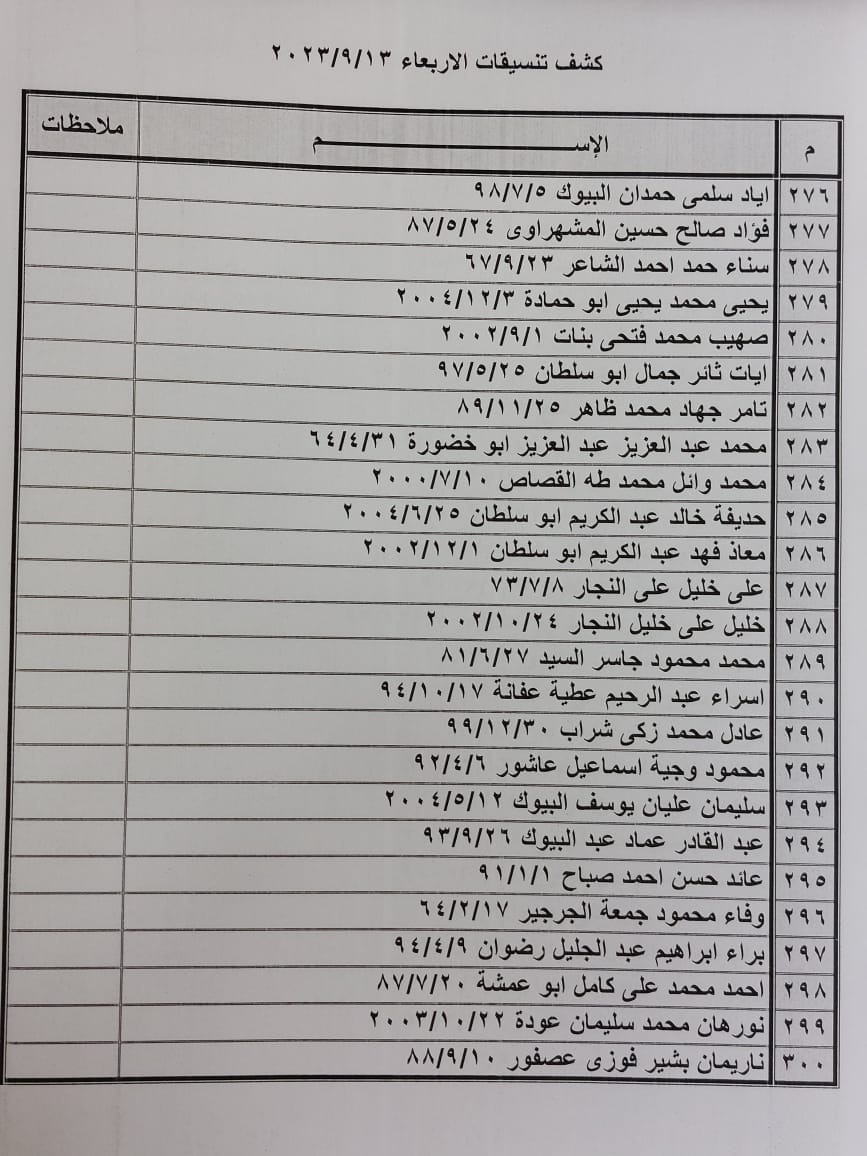 كشف تنسيقات الاربعاء ٢٠٢٣/٩/١٣
م الإســـــــــــم ملاحظات
٢٧٦ اياد سلمى حمدان البيوك ٩٨/٧/٥
٢٧٧ فؤاد صالح حسين المشهراوى ٨٧/٥/٢٤
٢٧٨ سناء حمد احمد الشاعر ٦٧/٩/٢٣
٢٧٩ يحيى محمد يحيى ابو حمادة ٢٠٠٤/١٢/٣
٢٨٠ صهيب محمد فتحى بنات ٢٠٠٢/٩/١
٢٨١ ايات ثائر جمال ابو سلطان ٩٧/٥/٢٥
٢٨٢ تامر جهاد محمد ظاهر ٨٩/١١/٢٥
٢٨٣ محمد عبد العزيز عبد العزيز ابو خضورة ٦٤/٤/٣١
٢٨٤ محمد وائل محمد طه القصاص ٢٠٠٠/٧/١٠
٢٨٥ حديفة خالد عبد الكريم ابو سلطان ٢٠٠٤/٦/٢٥
٢٨٦ معاذ فهد عبد الكريم ابو سلطان ٢٠٠٢/١٢/١
٢٨٧ على خليل على النجار ٧٣/٧/٨
٢٨٨ خليل على خليل النجار ٢٠٠٢/١٠/٢٤
٢٨٩ محمد محمود جاسر السيد ٨١/٦/٢٧
٢٩٠ اسراء عبد الرحيم عطية عفانة ٩٤/١٠/١٧
٢٩١ عادل محمد زكى شراب ٩٩/١٢/٣٠
٢٩٢ محمود وجية اسماعيل عاشور ٩٢/٤/٦
٢٩٣ سليمان عليان يوسف البيوك ٢٠٠٤/٥/١٢
٢٩٤ عبد القادر عماد عبد البيوك ٩٣/٩/٢٦
٢٩٥ عائد حسن احمد صباح ٩١/١/١
٢٩٦ وفاء محمود جمعة الجرجير ٦٤/٢/١٧
٢٩٧ براء ابراهيم عبد الجليل رضوان ٩٤/٤/٩
٢٩٨ احمد محمد على كامل ابو عمشة ٨٧/٧/٢٠
٢٩٩ نورهان محمد سليمان عودة ٢٠٠٣/١٠/٢٢
٣٠٠ ناريمان بشير فوزى عصفور ٨٨/٩/١٠